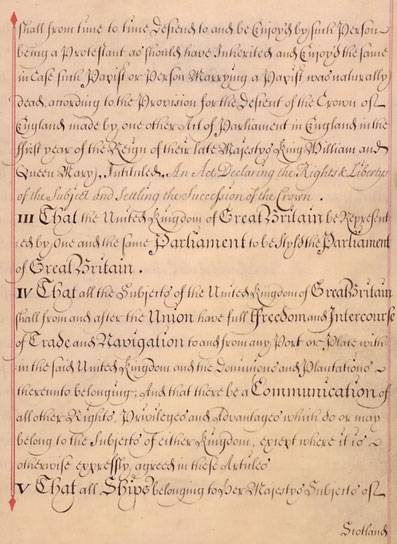 shall from time to time Descend to and be Enjoyed by such Person
being a Protestant as should have Inherited and Enjoyed the same
in Case such Papist or Person Marrying a Papist was naturally
dead, according to the Provision for the Descent of the Crown of
England made by one other Act of Parliament in England in the
ffirst year of the Reign of their late Majestys King William and
Queen Mary, Intituled, An Act Declaring the Rights & Libertys
of the Subject and Settling the Succession of the Crown.
III That the United Kingdom of Great Britain be Represent
ed by one and the same Parliament to be Styled the Parliament
of Great Britain.
IV That all the Subjects of the United Kingdom of Great Britain
shall from and after the Union have full ffreedom and Intercourse
of Trade and Navigation to and from any Port or Place with
in the said United Kingdom and the Dominions and Plantations
thereunto belonging; And that there be a Communication of
all other Rights, Privileges and Advantages which do or may
belong to the Subjects of either Kingdom, except where it is
otherwise expressly agreed in these Articles
V That all Ships belonging to Her Majestys Subjects of
Scotland